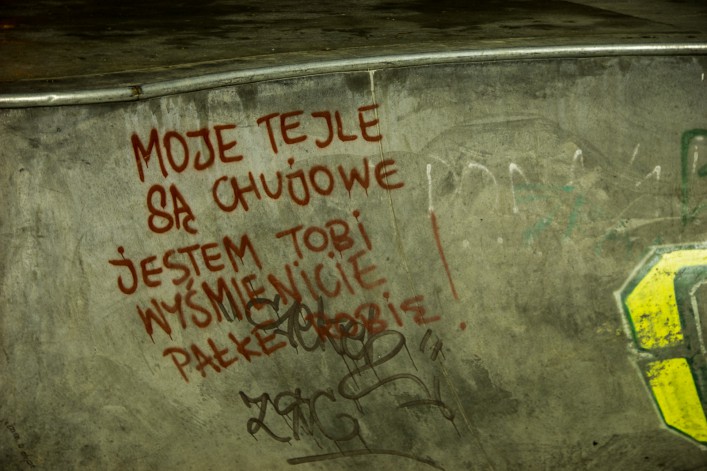 MOJE TEJLE
SĄ CHUJOWE
JESTEM TOBI
WYŚMIENICIE
PAŁKE ROBIE!